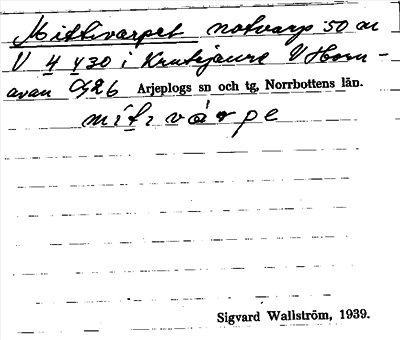 Mittivarpet notvarp 50 m
V 4 y 30 i Krutjaure V Horn-
avan G26 Arjeplogs sn och tg, Norrbottens län.
mítivárpe
Sigvard Wallström, 1939.